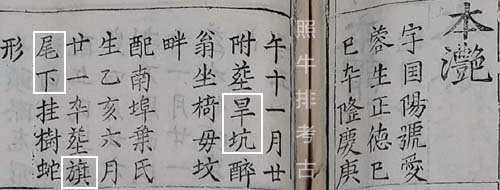 本灧
字囯陽號愛
蓉生正德巳
巳年隆慶庚
午十一月廿
附塟旱坑醉
翁坐椅毋坟
畔
配南埠葉氏
生乙亥六月
廿一年塟旗
尾下挂樹蛇
形
照牛排考古